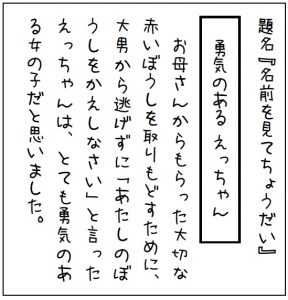 題名『名前を見てちょうだい』
勇気のある えっちゃん
お母さんからもらった大切な
赤いぼうしを取りもどすために、
大男から逃げずに「あたしのぼ
うしをかえしなさい」と言った
えっちゃんは、とても勇気のあ
る女の子だと思いました。